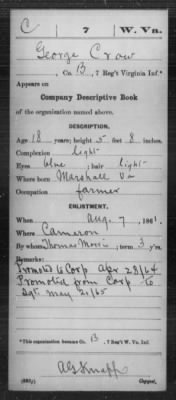 C | 7 | W. Va.
George Craw
, Co. B, 7 Reg't Virginia Inf.*
Appears on
Company Descriptive Book
of the organization named above.
DESCRIPTION.
Age 18 years; height 5 feet 8 inches.
Complexion light
Eyes blue; hair light
Where born Marshall Va
Occupation farmer
ENLISTMENT.
When Aug. 7, 1861.
Where Cameron
By whom Thomas Morris; term 3 y'rs.
Remarks:
Promoted to Corp Apr 28/64
Promoted from Corp to
Sgt. May 21/65
*This organization became Co. B, 7 Reg't W. Va. Inf.
Knapp
Copyist.